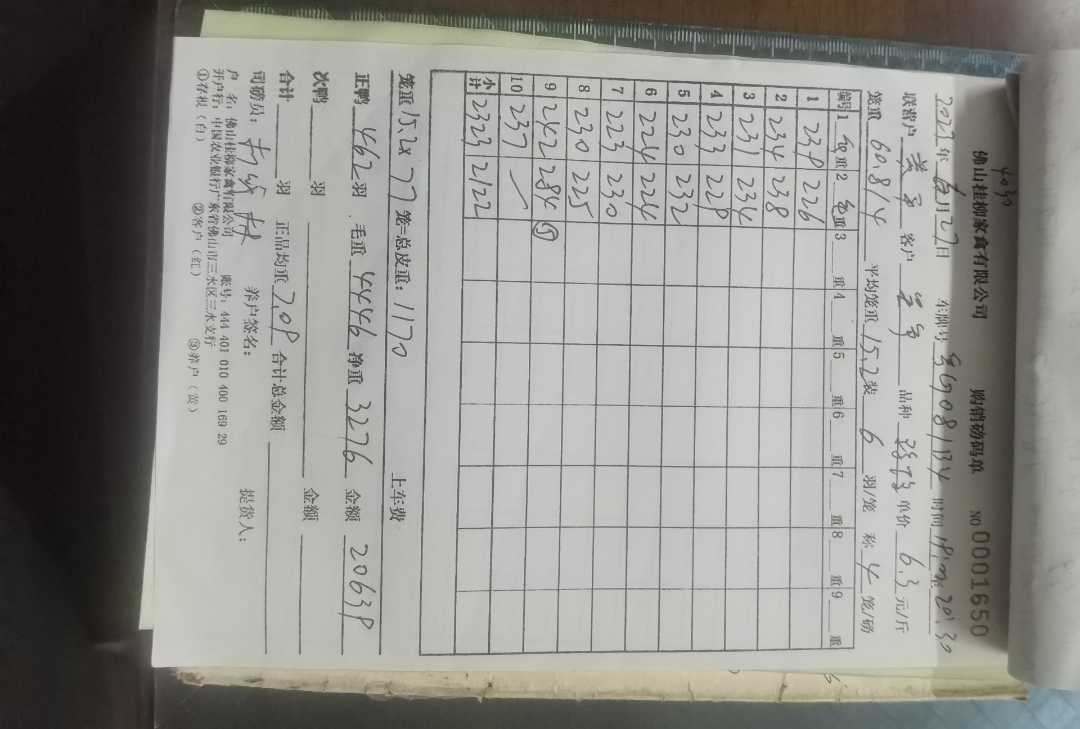 4030
佛山桂柳家禽有限公司 购销磅码单 NO 0001650
2023年 月27日 车牌号 081B4 时间 20:30
联营户 客户 品种 单价 6.3 元/斤
笼重 60.8/4 平均笼重 15.2 装 6 羽/笼 称 4 笼/磅
编号 1 重 2 重 3 重 4 重 5 重 6 重 7 重 8 重 9 重
1 238 226
2 234 238
3 231 234
4 233 228
5 230 232
6 224 224
7 223 230
8 230 225
9 242 284 ⑤
10 237
小计 2323 2122
笼重 15.2x77 笼=总皮重: 1170 上车费
正鸭 462 羽 毛重 4446 净重 3276 金额 20638
次鸭 羽 金额
合计 羽 正品均重 7.09 合计总金额
司磅员: 养户签名: 提货人:
户 名: 佛山桂柳家禽有限公司 账号: 444 401 010 400 169 29
开户行: 中国农业银行广东省佛山市三水区三水支行
①存根(白) ②客户(红) ③养户(黄)